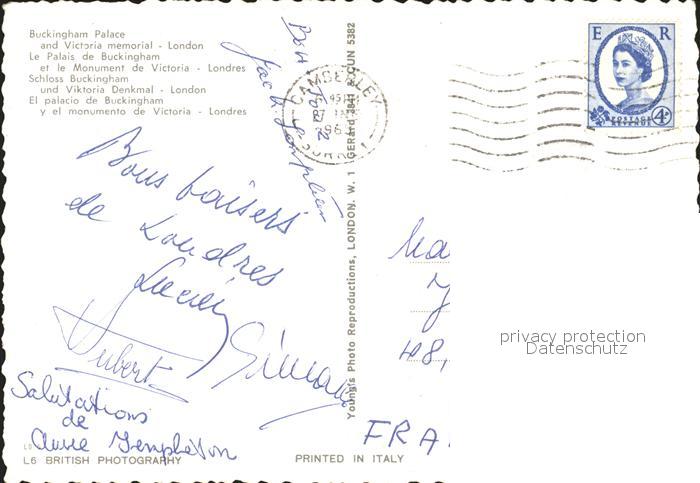 Buckingham Palace
and Victoria memorial - London
Le Palais de Buckingham
et le Monument de Victoria - Londres
Schloss Buckingham
und Viktoria Denkmal - London
El palacio de Buckingham
y el monumento de Victoria - Londres
Bon
Jack Templeton
CAMBERLEY
SURREY
E R
POSTAGE
REVENUE
4D
Bons baisers
de Londres
Lucien
Simon
Hubert
Salutations
de
Anne Templeton
L6 BRITISH PHOTOGRAPHY
PRINTED IN ITALY
Young's Photo Reproductions, LONDON. W. 1
GUN 5382
48,
privacy protection
Datenschutz
FRA